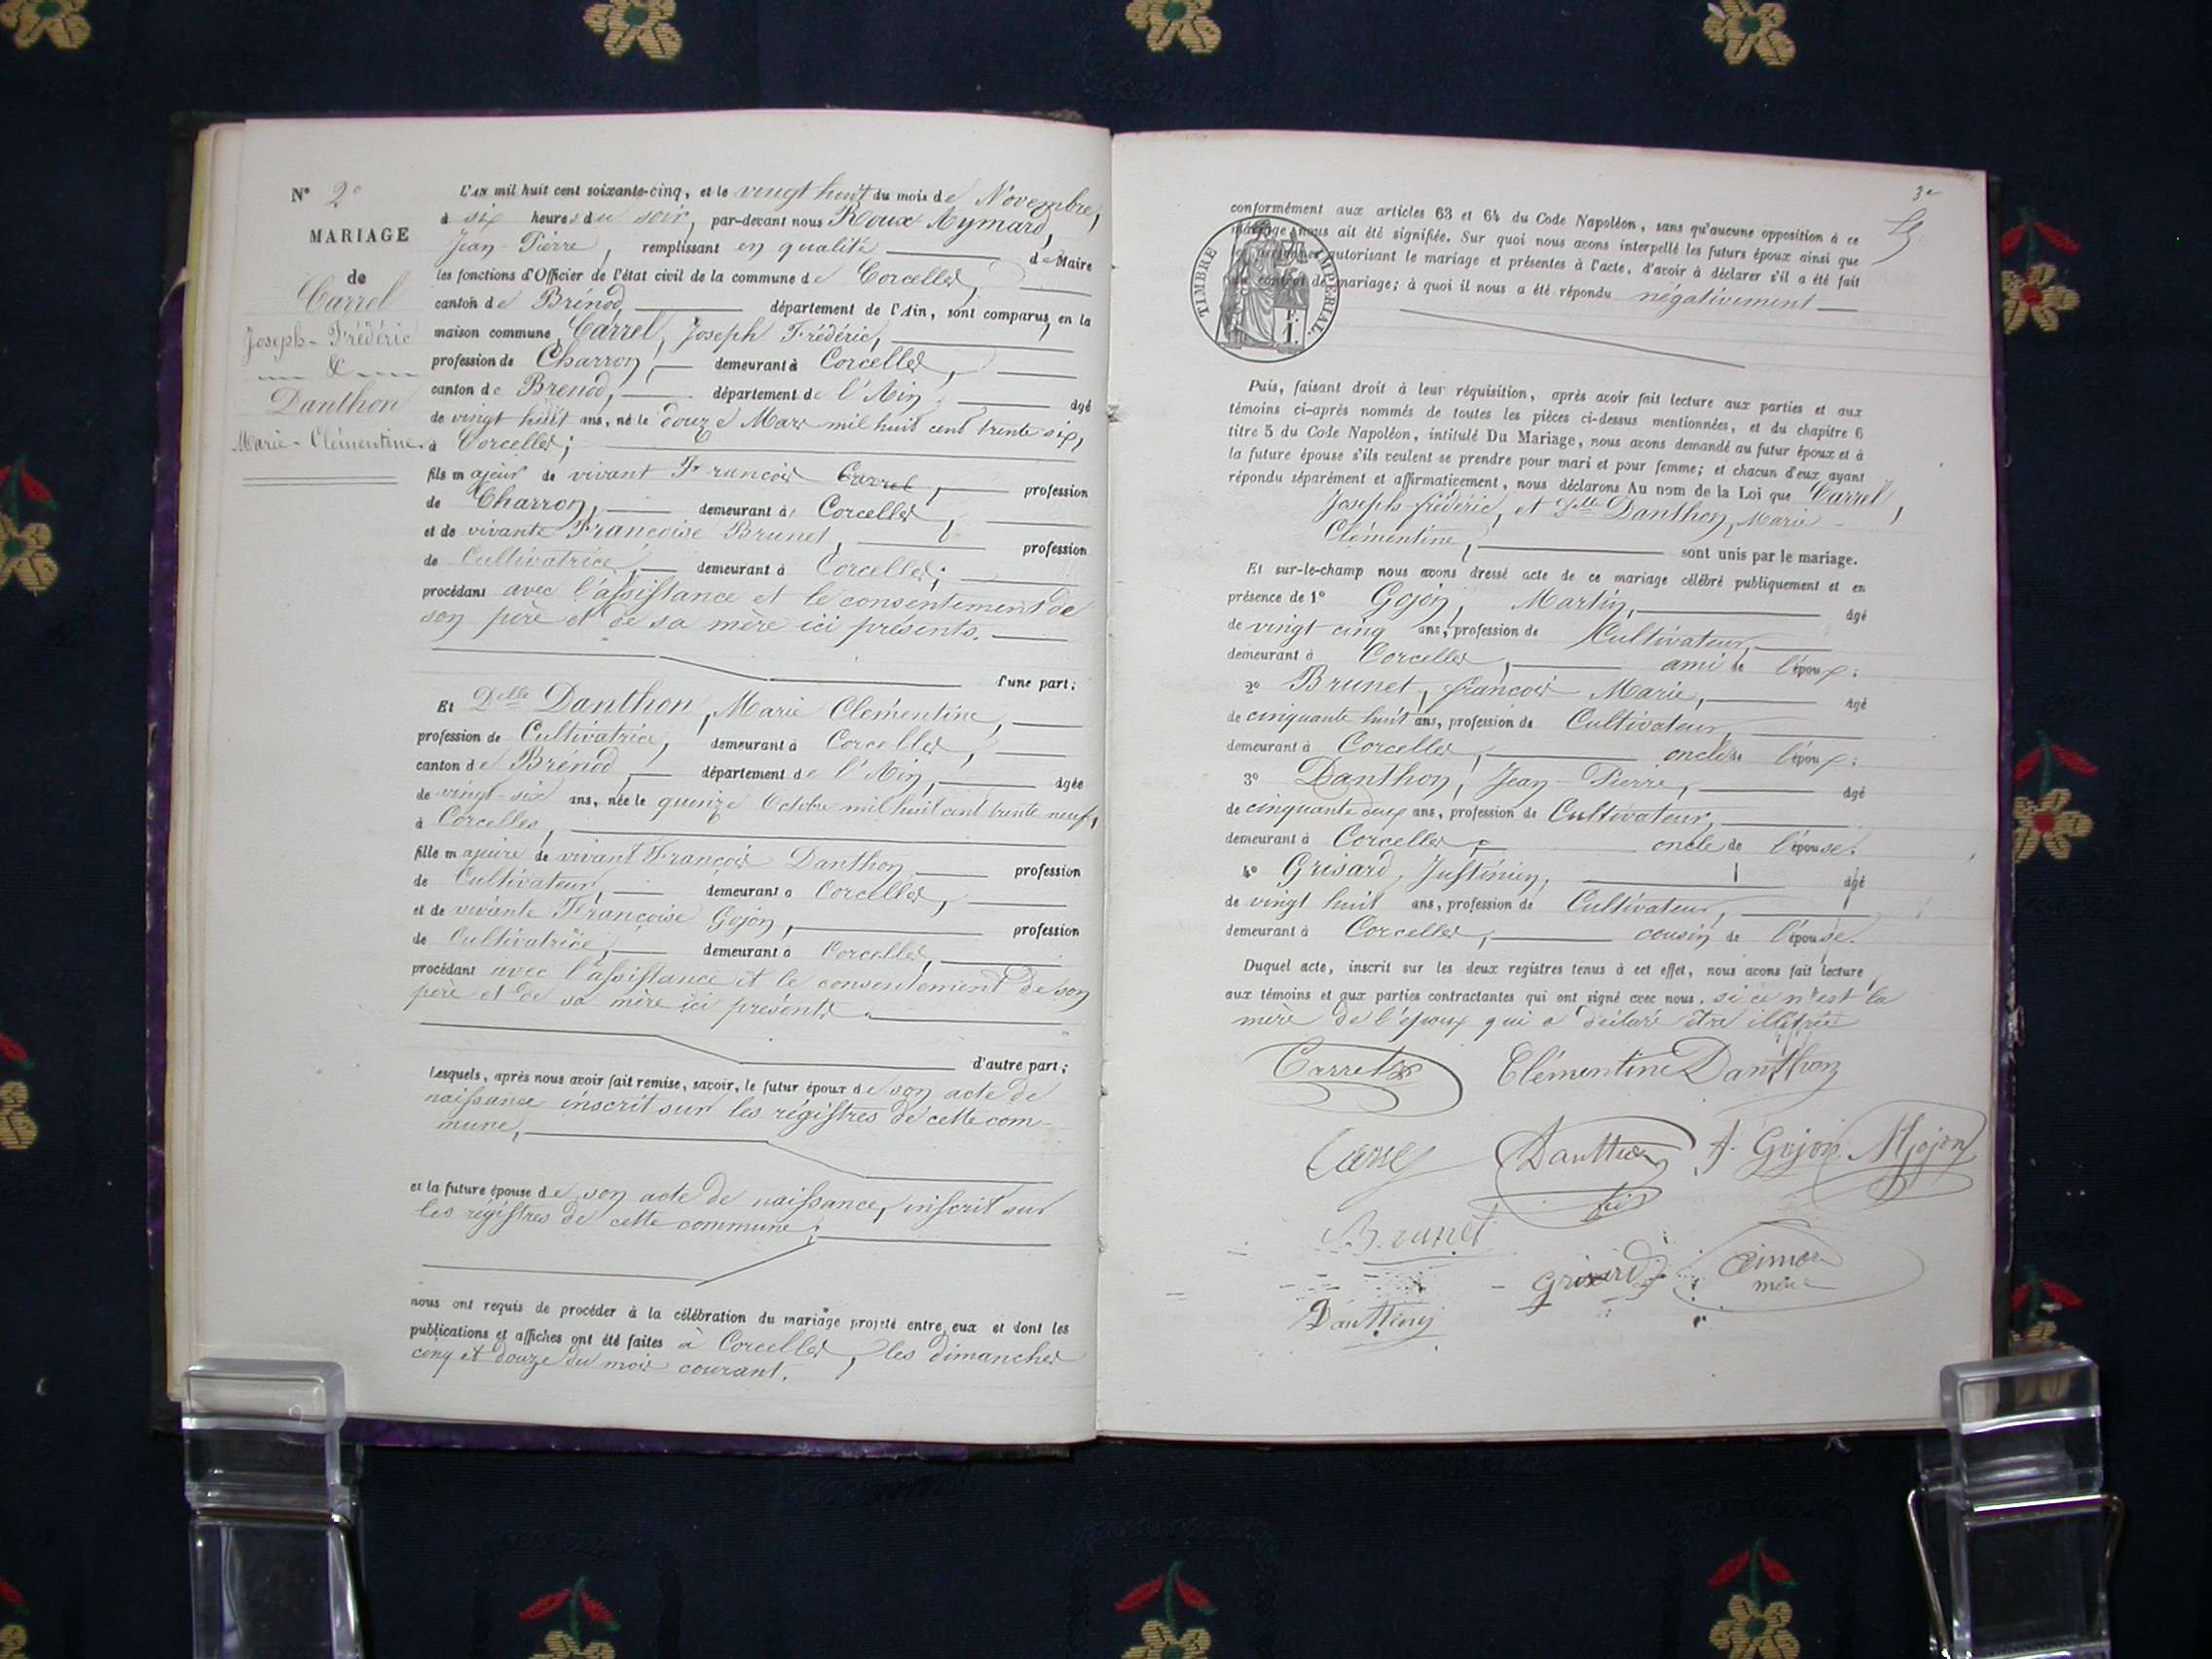 N° 2e
MARIAGE
de
Carrel
Joseph-Frédéric
&
Danthon
Marie-Clémentine.
L'AN mil huit cent soixante-cinq, et le vingt huit du mois de Novembre,
à six heures du soir, par-devant nous Roux Aymard,
Jean-Pierre, remplissant en qualité de Maire
les fonctions d'Officier de l'état civil de la commune de Corcelles,
canton de Brénod, département de l'Ain, sont comparus en la
maison commune, Carrel, Joseph Frédéric,
profession de Charron, demeurant à Corcelles,
canton de Brenod, département de l'Ain, âgé
de vingt huit ans, né le douze Mars mil huit cent trente six,
à Corcelles;
fils majeur de vivant François Carrel, profession
de Charron, demeurant à Corcelles,
et de vivante Françoise Brunet, profession
de Cultivatrice, demeurant à Corcelles;
procédant avec l'assistance et le consentement de
son père et de sa mère ici présents.
d'une part;
Et Delle Danthon, Marie Clémentine,
profession de Cultivatrice, demeurant à Corcelles,
canton de Brénod, département de l'Ain, âgée
de vingt-six ans, née le quinze Octobre mil huit cent trente neuf,
à Corcelles,
fille majeure de vivant François Danthon, profession
de Cultivateur, demeurant à Corcelles,
et de vivante Françoise Gojon, profession
de Cultivatrice, demeurant à Corcelles,
procédant avec l'assistance et le consentement de son
père et de sa mère ici présents
d'autre part;
Lesquels, après nous avoir fait remise, savoir, le futur époux de son acte de
naissance inscrit sur les régistres de cette com-
mune,
et la future épouse de son acte de naissance, inscrit sur
les régistres de cette commune;
nous ont requis de procéder à la célébration du mariage projeté entre eux et dont les
publications et affiches ont été faites à Corcelles, les dimanches
cinq et douze du mois courant.
3e
conformément aux articles 63 et 64 du Code Napoléon, sans qu'aucune opposition à ce
mariage nous ait été signifiée. Sur quoi nous avons interpellé les futurs époux ainsi que
autorisant le mariage et présentes à l'acte, d'avoir à déclarer s'il a été fait
contrat de mariage; à quoi il nous a été répondu négativement
TIMBRE IMPERIAL.
F.
1.
Puis, faisant droit à leur réquisition, après avoir fait lecture aux parties et aux
témoins ci-après nommés de toutes les pièces ci-dessus mentionnées, et du chapitre 6
titre 5 du Code Napoléon, intitulé Du Mariage, nous avons demandé au futur époux et à
la future épouse s'ils veulent se prendre pour mari et pour femme; et chacun d'eux ayant
répondu séparément et affirmativement, nous déclarons Au nom de la Loi que Carrel,
Joseph-frédéric, et Delle Danthon, Marie-
Clémentine, sont unis par le mariage.
Et sur-le-champ nous avons dressé acte de ce mariage célébré publiquement et en
présence de 1° Gojon, Martin, âgé
de vingt cinq ans, profession de Cultivateur,
demeurant à Corcelles, ami de l'époux;
2° Brunet, françois Marie, âgé
de cinquante huit ans, profession de Cultivateur,
demeurant à Corcelles, oncle de l'époux;
3° Danthon, Jean-Pierre, âgé
de cinquante deux ans, profession de Cultivateur,
demeurant à Corcelles, oncle de l'épouse.
4° Grisard, Justinien, âgé
de vingt huit ans, profession de Cultivateur,
demeurant à Corcelles, cousin de l'épouse.
Duquel acte, inscrit sur les deux registres tenus à cet effet, nous avons fait lecture
aux témoins et aux parties contractantes qui ont signé avec nous, si ce n'est la
mère de l'époux qui a déclaré être illétrée
Carrel Clémentine Danthon
Danthon F. Gojon MGojon
Brunet
Grisard
Danthon